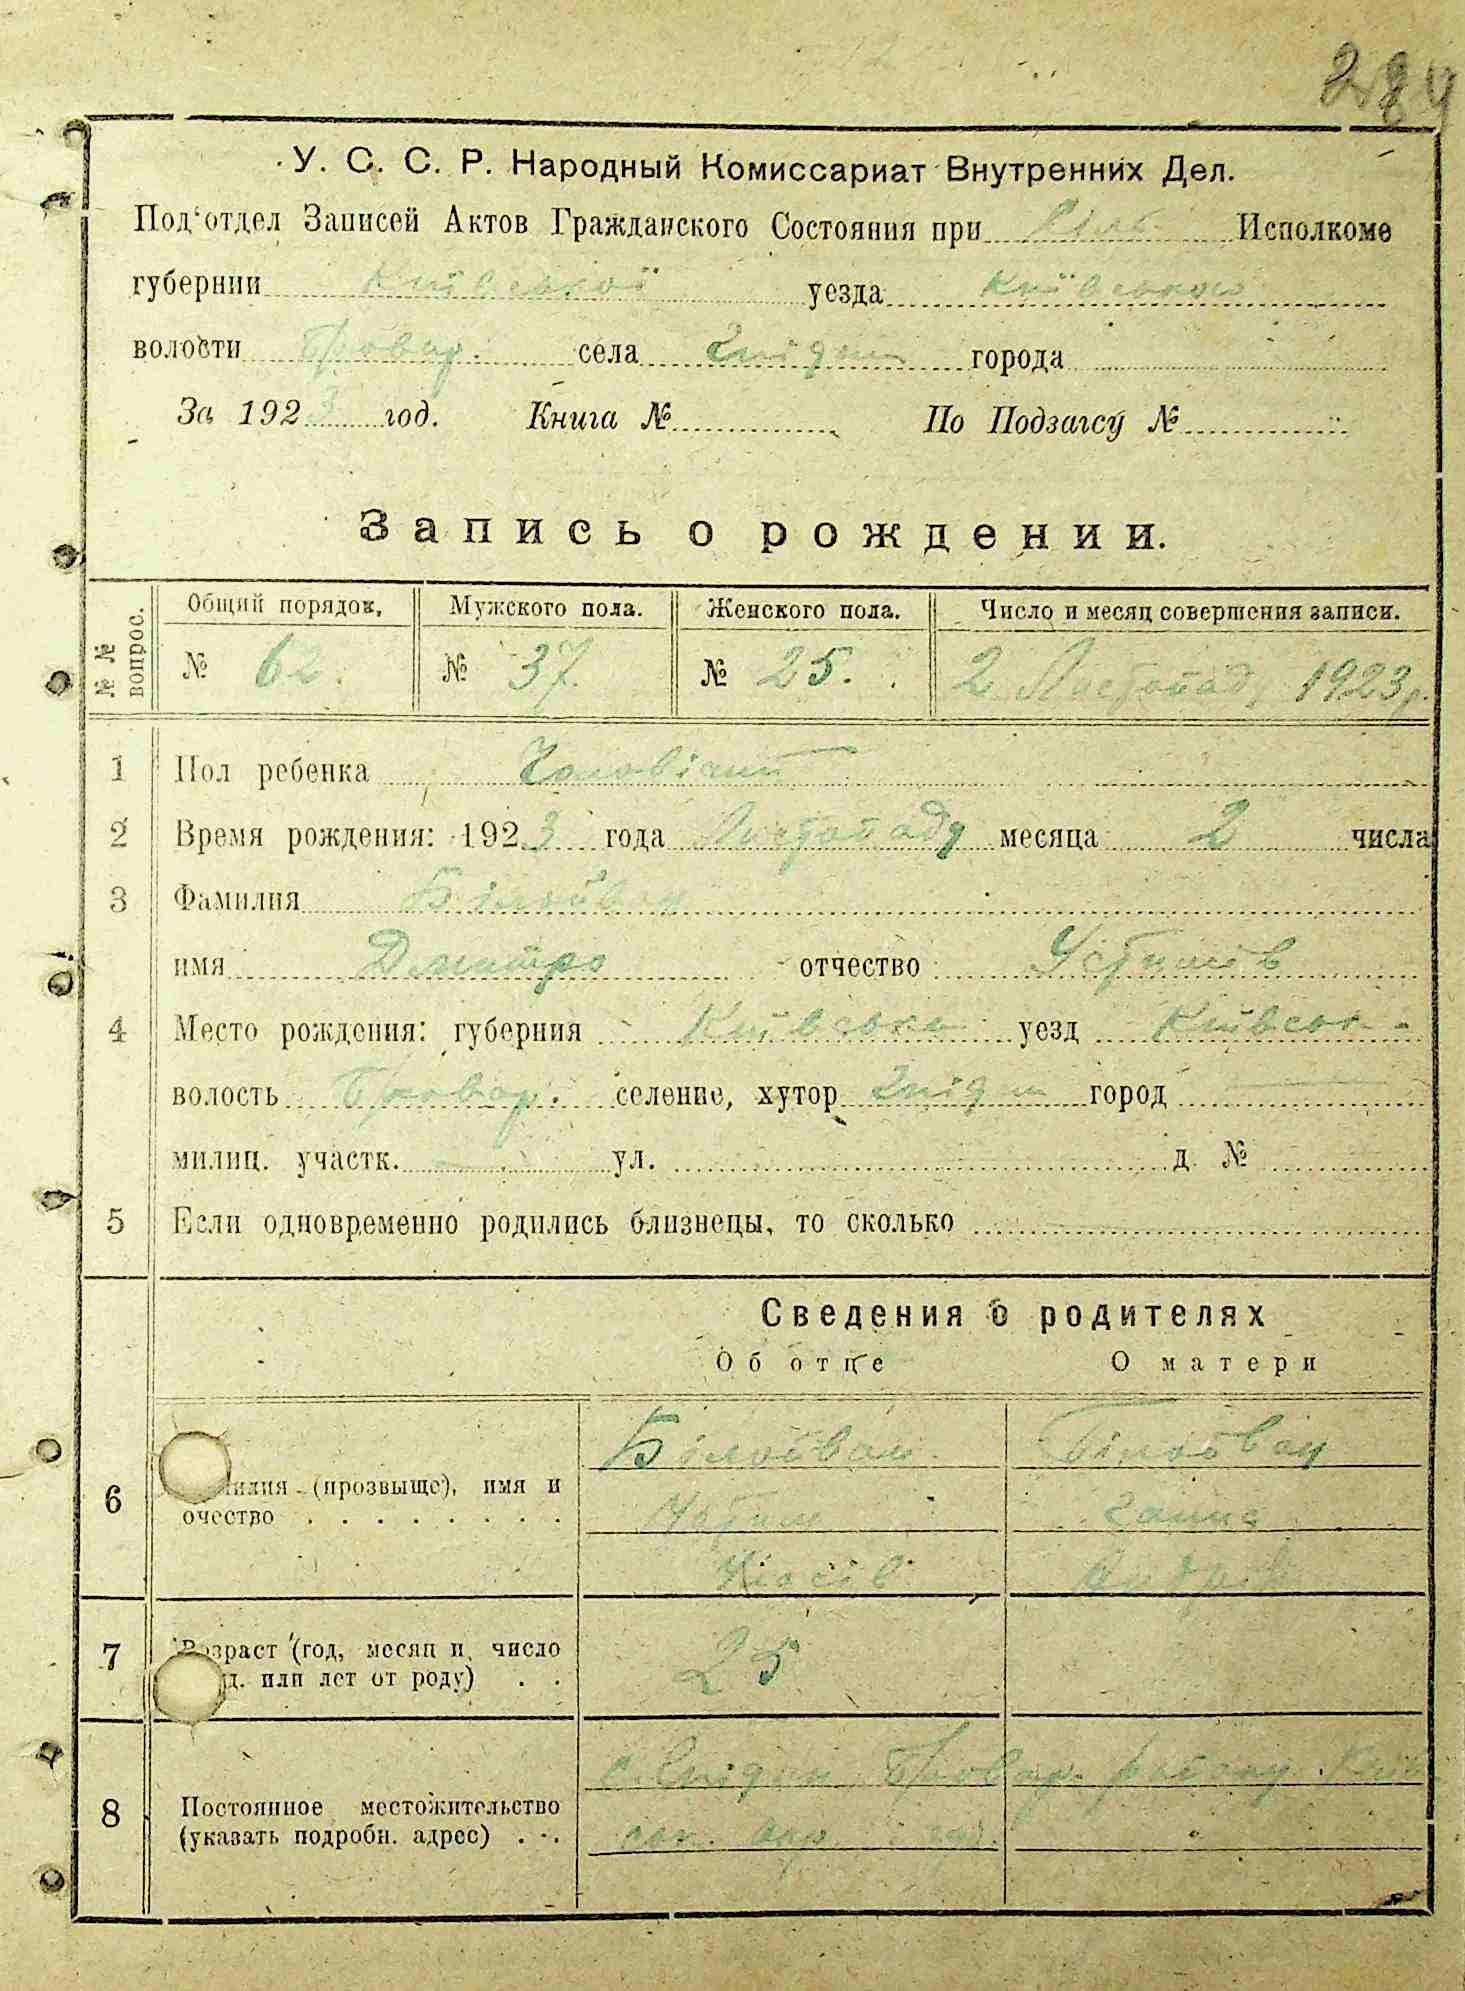 284
У. С. С. Р. Народный Комиссариат Внутренних Дел.
Под'отдел Записей Актов Гражданского Состояния при Исполкоме
губернии Київської уезда Київського
волости Бровар. села Гнідин города
За 1923 год. Книга № По Подзагсу №
Запись о рождении.
№ № вопрос. Общий порядок, Мужского пола. Женского пола. Число и месяц совершения записи.
№ 62. № 37. № 25. 2 Листопаду 1923 р.
1 Пол ребенка
2 Время рождения: 1923 года Листопаду месяца 2 числа
3 Фамилия Білойван
имя Дмитро отчество Устимів
4 Место рождения: губерния Київська уезд Київськ.
волость Бровар. селение, хутор Гнідин город
милиц. участк. ул. д №
5 Если одновременно родились близнецы, то сколько
Сведения о родителях
Об отце О матери
Білойван Білойван
6 милия (прозвыще), имя и Устим Ганна
очество
7 Возраст (год, месяц и число 25
д. или лет от роду)
с. Гнідин Бровар. району Київ
8 Постоянное местожительство
(указать подробн. адрес) ськ. окр.